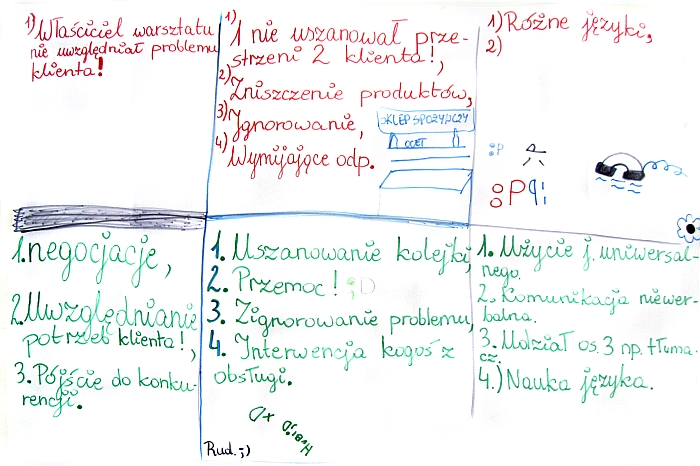 1) Właściciel warsztatu
nie uwzględniał problemu
klienta!
1)
1 nie uszanował prze-
strzeni 2 klienta!,
2) Zniszczenie produktów,
3) Ignorowanie,
4) Wymijające odp.
SKLEP SPOŻYWCZY
OCET
1) Różne języki,
2)
:P
:P
1. negocjacje,
2. Uwzględnianie
potrzeb klienta!,
3. Pójście do konku-
rencji.
1. Uszanowanie kolejki,
2. Przemoc! ;D
3. Zignorowanie problemu,
4. Interwencja kogoś z
obsługi.
XD
Rud. ;)
1. Użycie j. uniwersal-
nego.
2. Komunikacja niewer-
balna.
3. Udział os. 3 np. tłuma-
cz.
4.) Nauka języka.